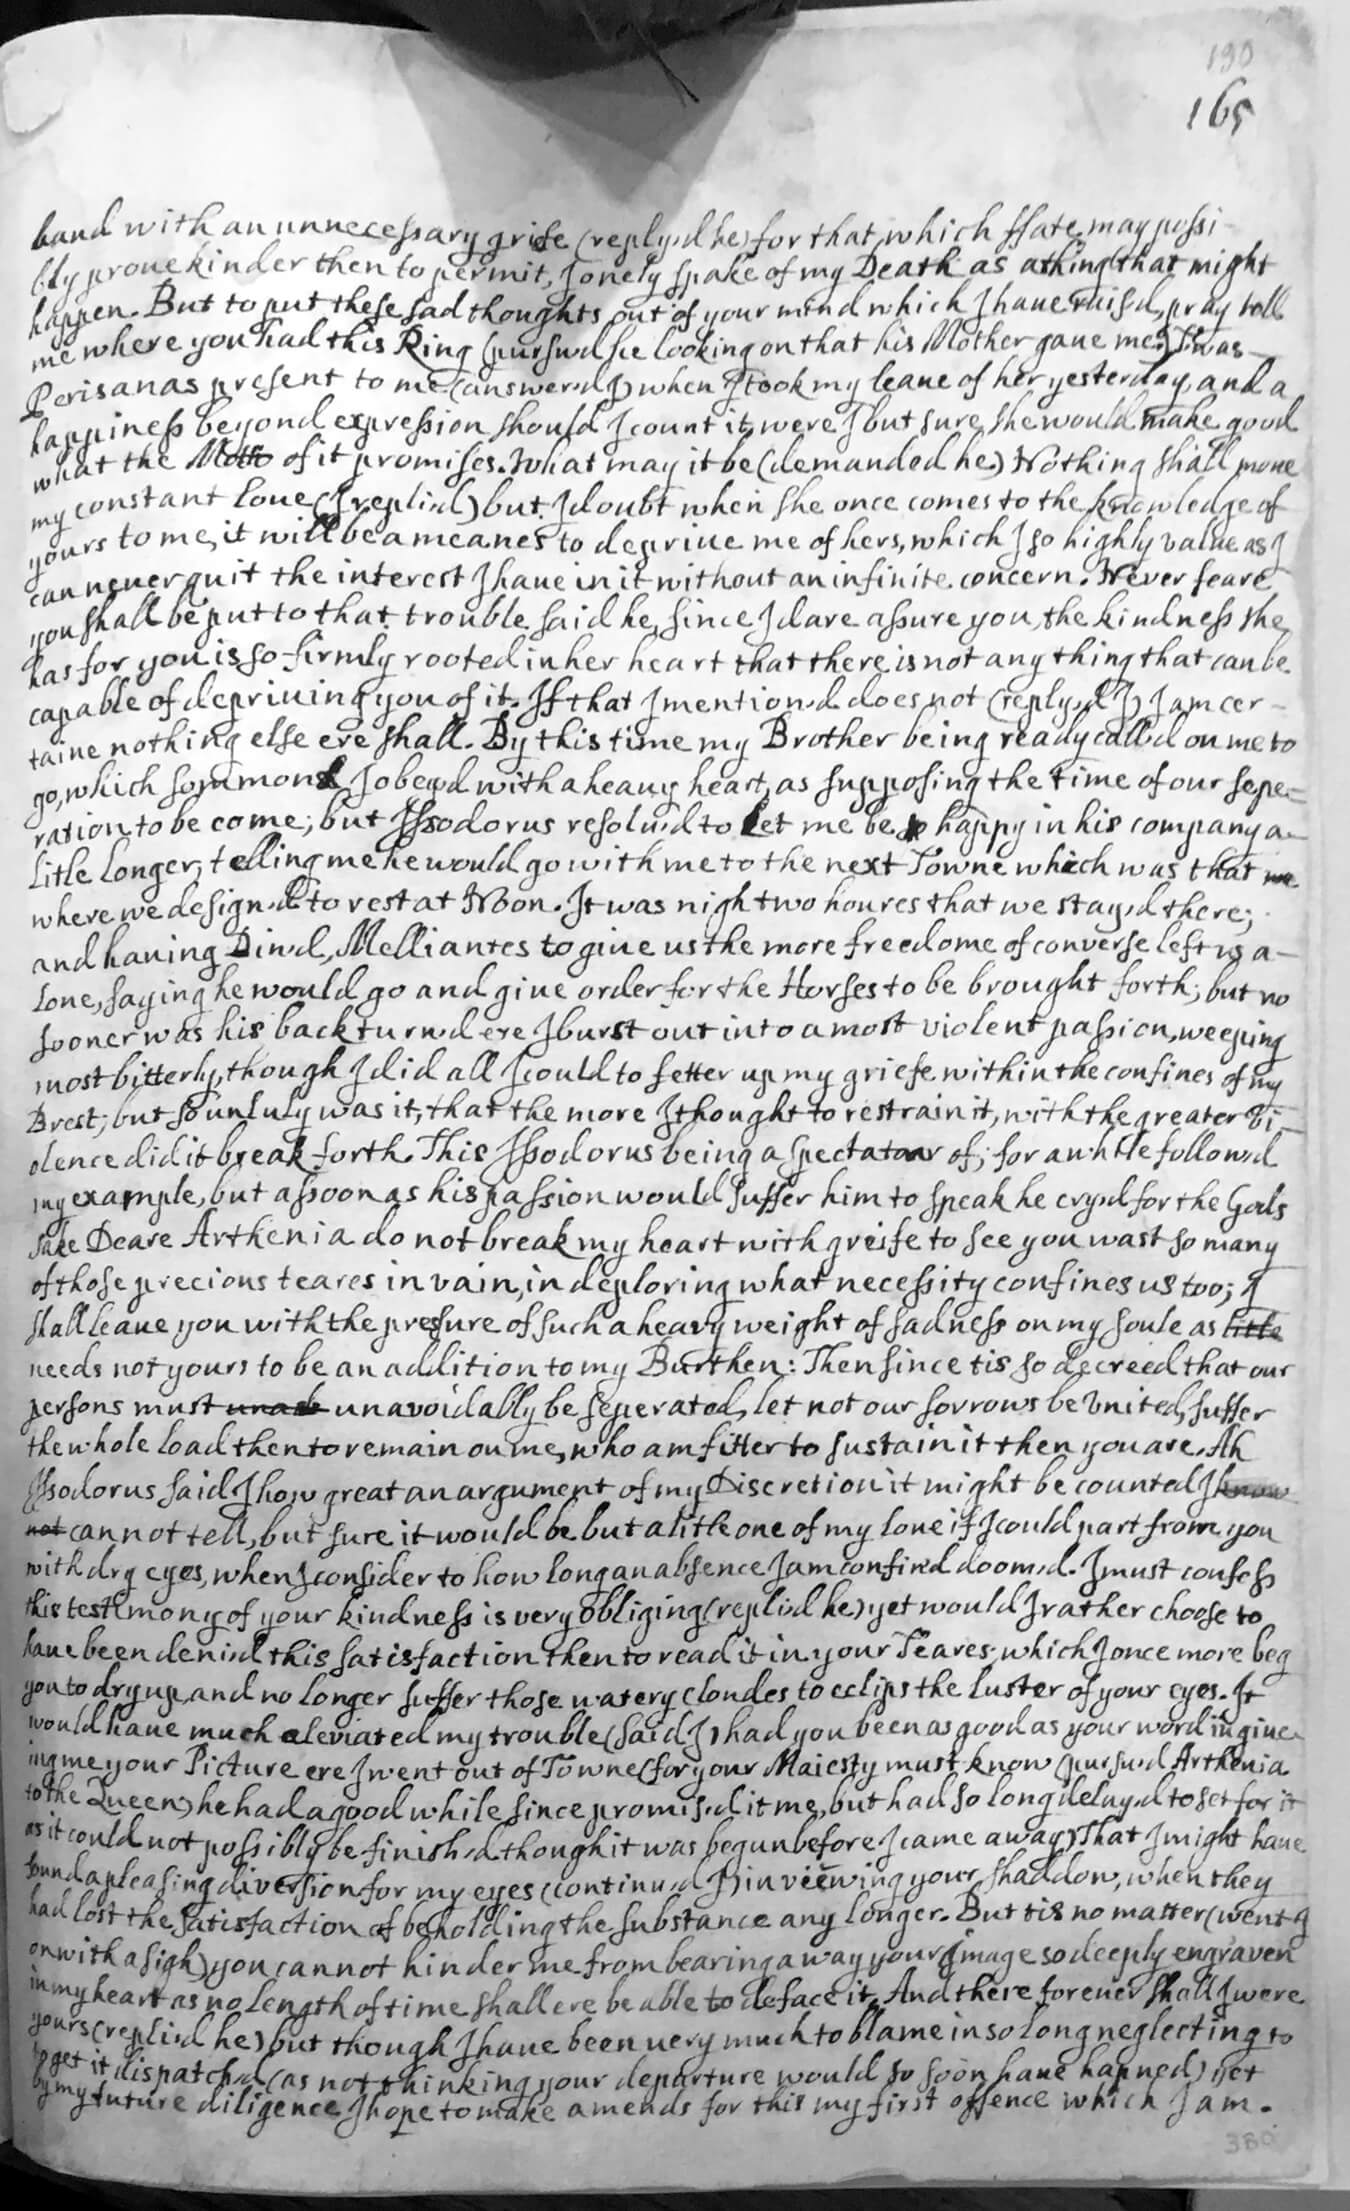 190
165
band with an unnecessary griefe (reply.d he) for that which ffate may possi-
bly proue kinder then to permit, I onely spake of my Death as a thing that might
happen. But to put these sad thoughts out of your mind which I haue rais'd, pray tell
me where you had this Ring (pursu'd he looking on that his Mother gaue me.) T'was
Perisanas present to me (answer.d I) when I took my leaue of her yesterday, and a
happiness beyond expression should I count it, were I but sure she would make good
what the Motto of it promises. What may it be (demanded he.) Nothing shall moue
my constant loue (I repli.d) but I doubt when she once comes to the knowledge of
yours to me, it will be a meanes to depriue me of hers, which I so highly value as I
can neuer quit the interest I haue in it without an infinite concern. Never feare
you shall be put to that trouble said he, since I dare assure you, the kindness she
has for you is so firmly rooted in her heart that there is not any thing that can be
capable of depriuing you of it. If that I mention.d does not (reply.d I) I am cer-
taine nothing else ere shall. By this time my Brother being ready call'd on me to
go, which sommons I obey.d with a heavy heart, as supposing the time of our sepe-
ration to be come; but Issodorus resolu'd to let me be so happy in his company a
litle longer, telling me he would go with me to the next Towne which was that we
where we design.d to rest at Noon. It was nigh two houres that we stay.d there;
and hauing Din.d, Melliantes to giue us the more freedome of converse left us a-
lone, saying he would go and giue order for the Horses to be brought forth; but no
sooner was his back turn.d ere I burst out into a most violent passion, weeping
most bitterly, though I did all I could to fetter up my griefe within the confines of my
Brest; but so unluly was it, that the more I thought to restrain it, with the greater vi-
olence did it break forth. This Issodorus being a spectatour of, for a while follow.d
my example, but assoon as his passion would suffer him to speak he cry.d for the Gods
sake Deare Arthenia do not break my heart with greife to see you wast so many
of those precious teares in vain, in deploring what necessity confines us too; I
shall leaue you with the pressure of such a heavy weight of sadness on my soule as little
needs not yours to be an addition to my Burthen: Then since tis so decreed that our
persons must unavoidably be seperated, let not our sorrows be Vnited, suffer
the whole load then to remain on me, who am fitter to sustain it then you are. Ah
Issodorus said I how great an argument of my Discretion it might be counted I know
not cannot tell, but sure it would be but a litle one of my loue if I could part from you
with dry eyes, when I consider to how long an absence I am confin'd doom.d. I must confess
this testimony of your kindness is very obliging (repli.d he) yet would I rather choose to
haue been deni.d this satisfaction then to read it in your Teares which I once more beg
you to dry up, and no longer suffer those watery cloudes to eclips the luster of your eyes. It
would haue much aleviated my trouble (said I) had you been as good as your word in giue
ing me your Picture ere I went out of Towne (for your Maiesty must know (pursu.d Arthenia
to the Queen) he had a good while since promis.d it me, but had so long delay.d to set for it
as it could not possibly be finish.d though it was begun before I came away) That I might haue
found a pleasing diversion for my eyes (continu.d I) in viewing your shaddow, when they
had lost the satisfaction of beholding the substance any longer. But tis no matter (went I
on with a sigh) you cannot hinder me from bearing away your Image so deeply engraven
in my heart as no length of time shall ere be able to deface it. And there foreuer shall I were
yours (repli.d he) but though I haue been uery much to blame in so long neglecting to
to get it dispatch.d (as not thinking your departure would so soon haue hapned) yet
by my future diligence I hope to make amends for this my first offence which I am.
380